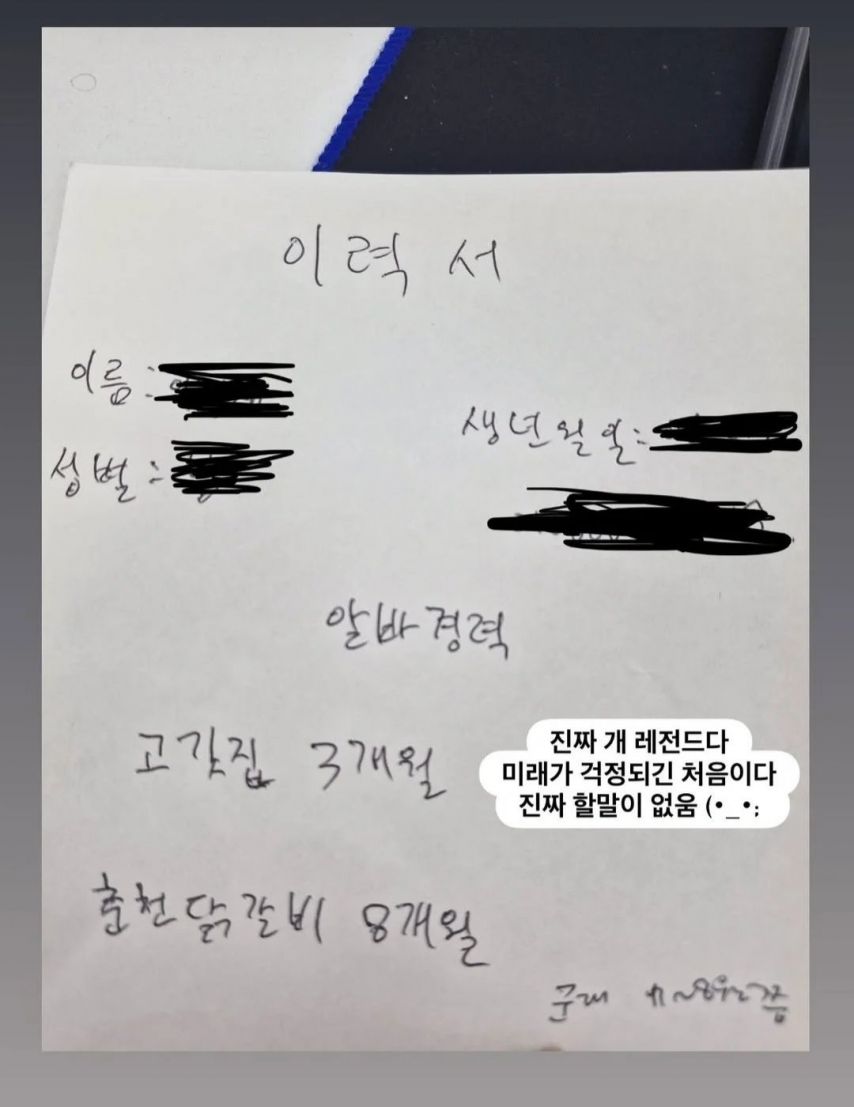 이력서
이름:
생년월일:
성별:
알바경력
고깃집 3개월
진짜 개 레전드다
미래가 걱정되긴 처음이다
진짜 할말이 없움 (•_•;
춘천닭갈비 8개월
군대